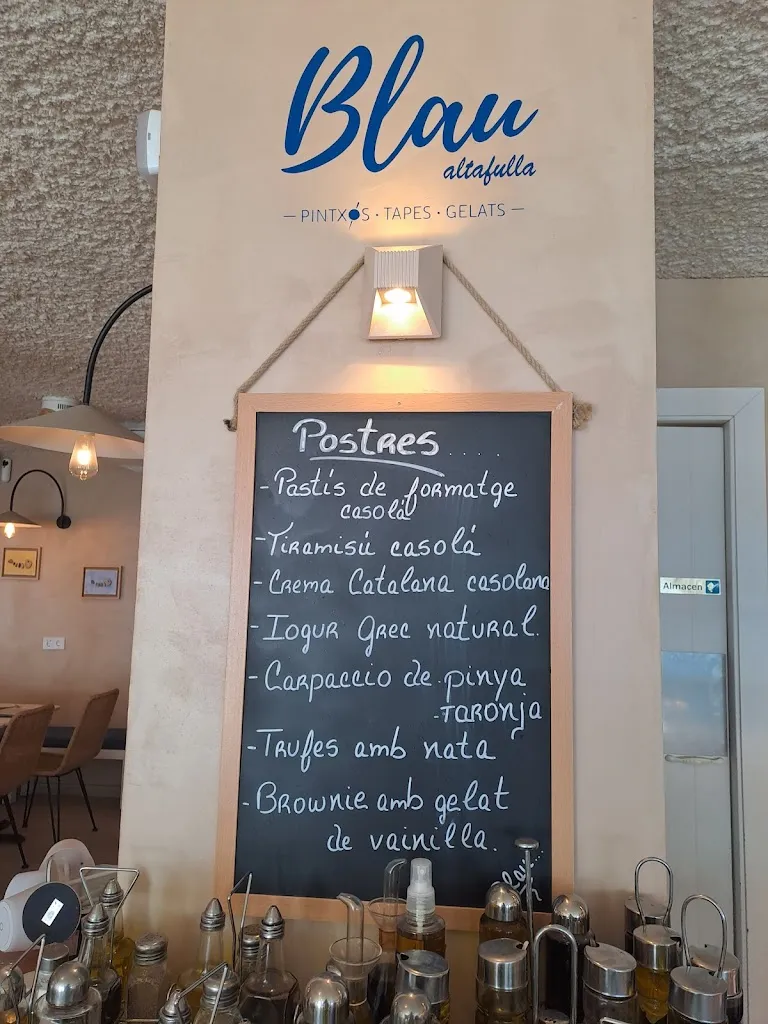 Blau
altafulla
— PINTXOS · TAPES · GELATS —
Postres.....
- Pastís de formatge
casolà
- Tiramisú casolá
- Crema Catalana casolana
- Iogur grec natural.
- Carpaccio de pinya
- Taronja
- Trufes amb nata
- Brownie amb gelat
de vainilla.
Almacen